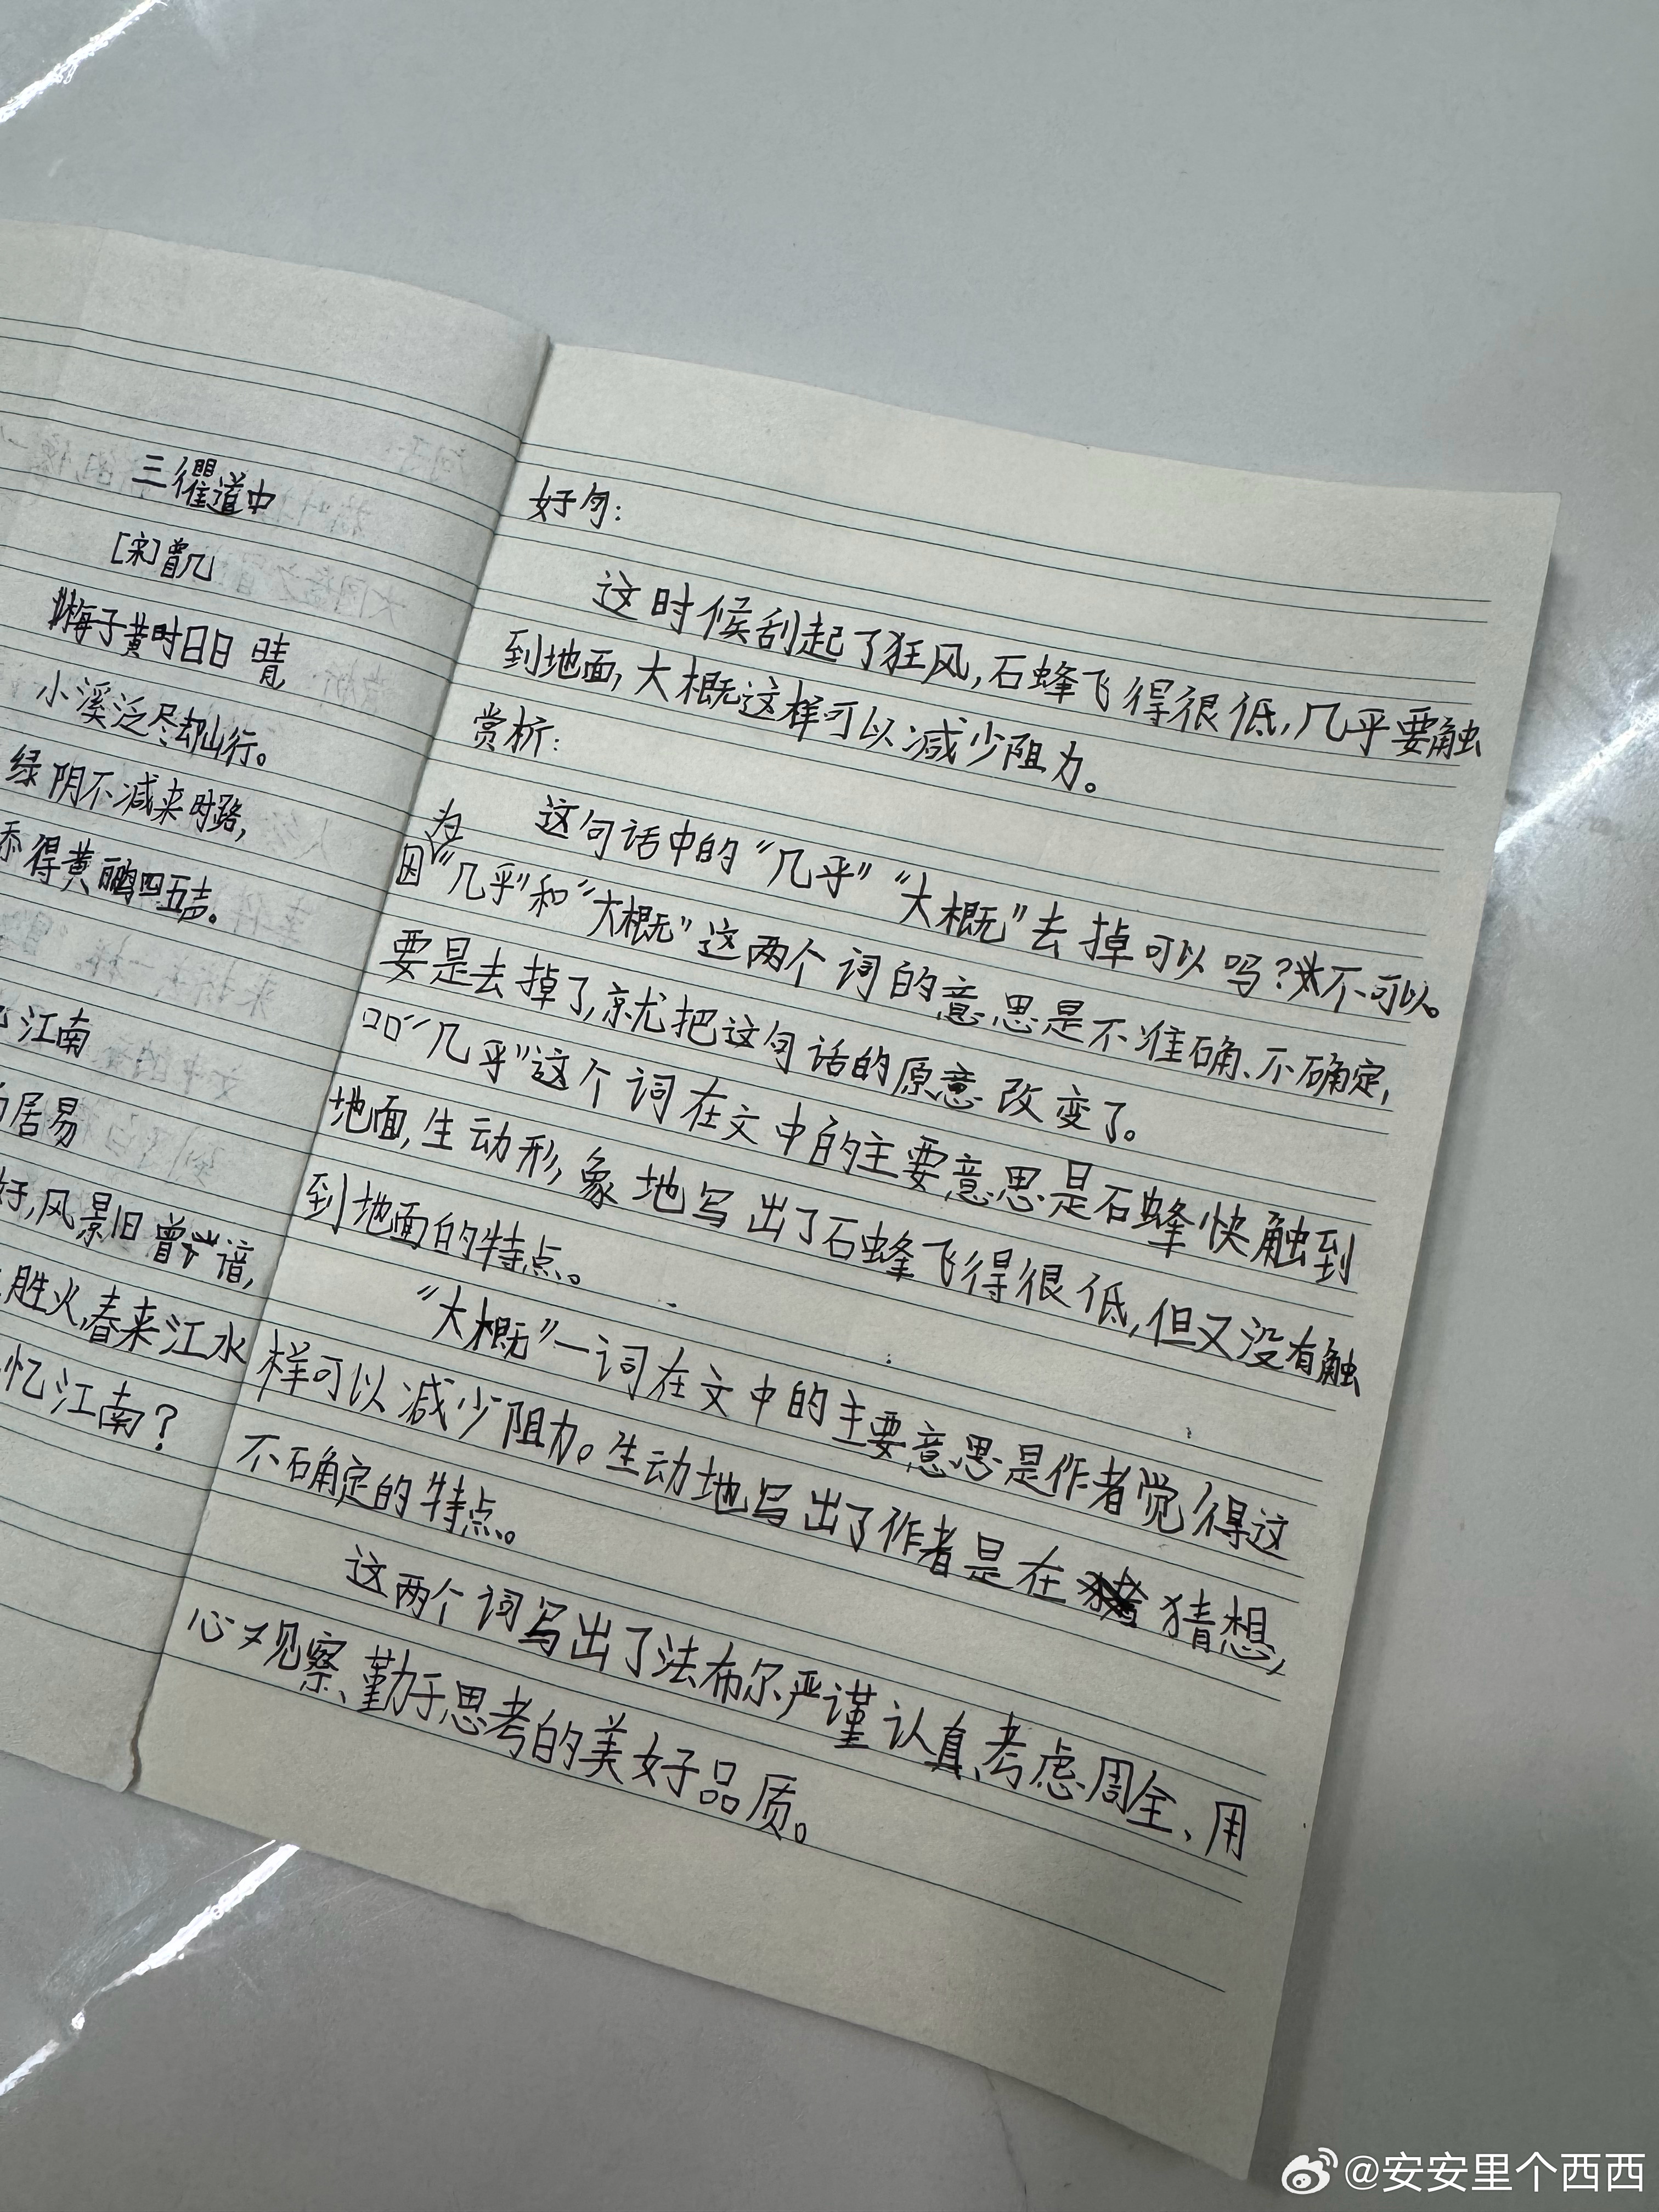 三衢道中
[宋]曾几
梅子黄时日日晴
小溪泛尽却山行。
绿阴不减来时路,
添得黄鹂四五声。
江南
居易
好,风景旧曾谙,
胜火,春来江水
忆江南?
好句:
这时候刮起了狂风,石蜂飞得很低,几乎要触
到地面,大概这样可以减少阻力。
赏析:
这句话中的“几乎”“大概”去掉可以吗?不可以。
因为“几乎”和“大概”这两个词的意思是不准确、不确定,
要是去掉了,就把这句话的原意改变了。
“几乎”这个词在文中的主要意思是石蜂快触到
地面,生动形,象地写出了石蜂飞得很低,但又没有触
到地面的特点。
“大概”一词在文中的主要意思是作者觉得这
样可以减少阻力。生动地写出了作者是在猜想,
不确定的特点。
这两个词写出了法布尔严谨认真、考虑周全、用
心观察、勤于思考的美好品质。
@安安里个西西